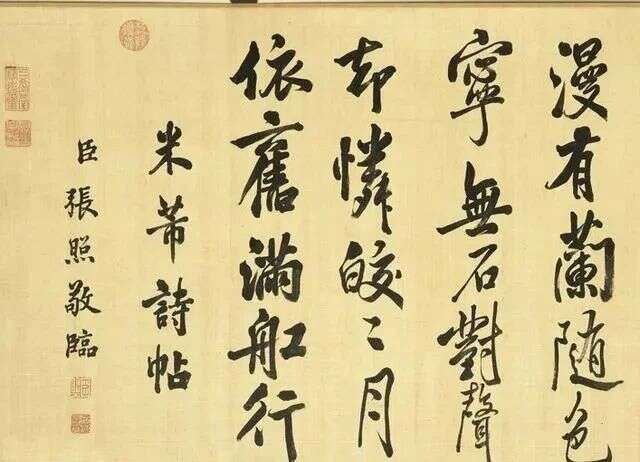 漫有蘭随色
寧無石對聲
却憐皎〻月
依舊滿舡行
米芾詩帖
臣張照敬臨